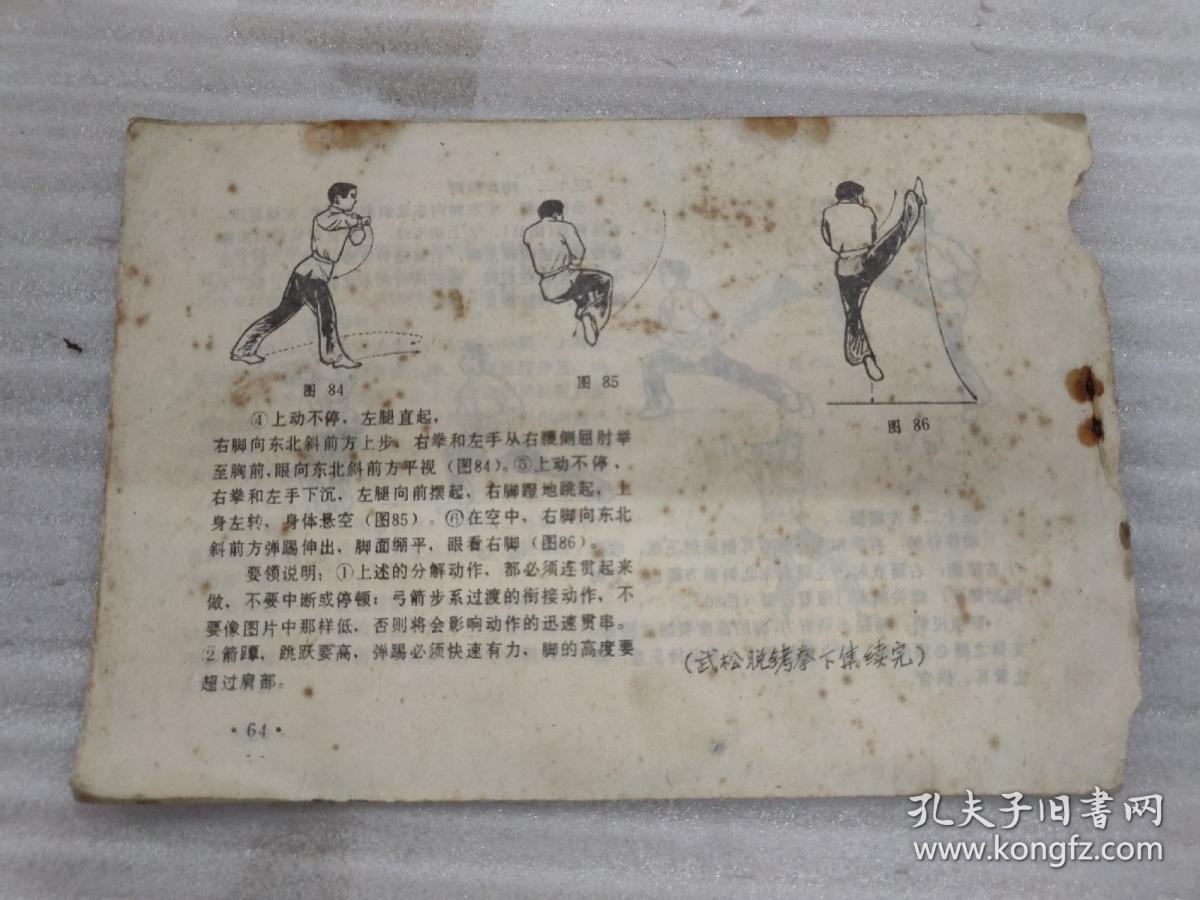 图 84
图 85
图 86
④上动不停，左腿直起，
右脚向东北斜前方上步，右拳和左手从右腰侧屈肘举
至胸前，眼向东北斜前方平视（图84）。⑤上动不停，
右拳和左手下沉，左腿向前摆起，右脚蹬地跳起，上
身左转，身体悬空（图85）。⑥在空中，右脚向东北
斜前方弹踢伸出，脚面绷平，眼看右脚（图86）。
要领说明：①上述的分解动作，都必须连贯起来
做，不要中断或停顿；弓箭步系过渡的衔接动作，不
要像图片中那样低，否则将会影响动作的迅速贯串。
②箭蹿，跳跃要高，弹踢必须快速有力，脚的高度要
超过肩部。
（武松脱铐拳下集续完）
·64·
孔夫子旧书网
www.kongfz.com